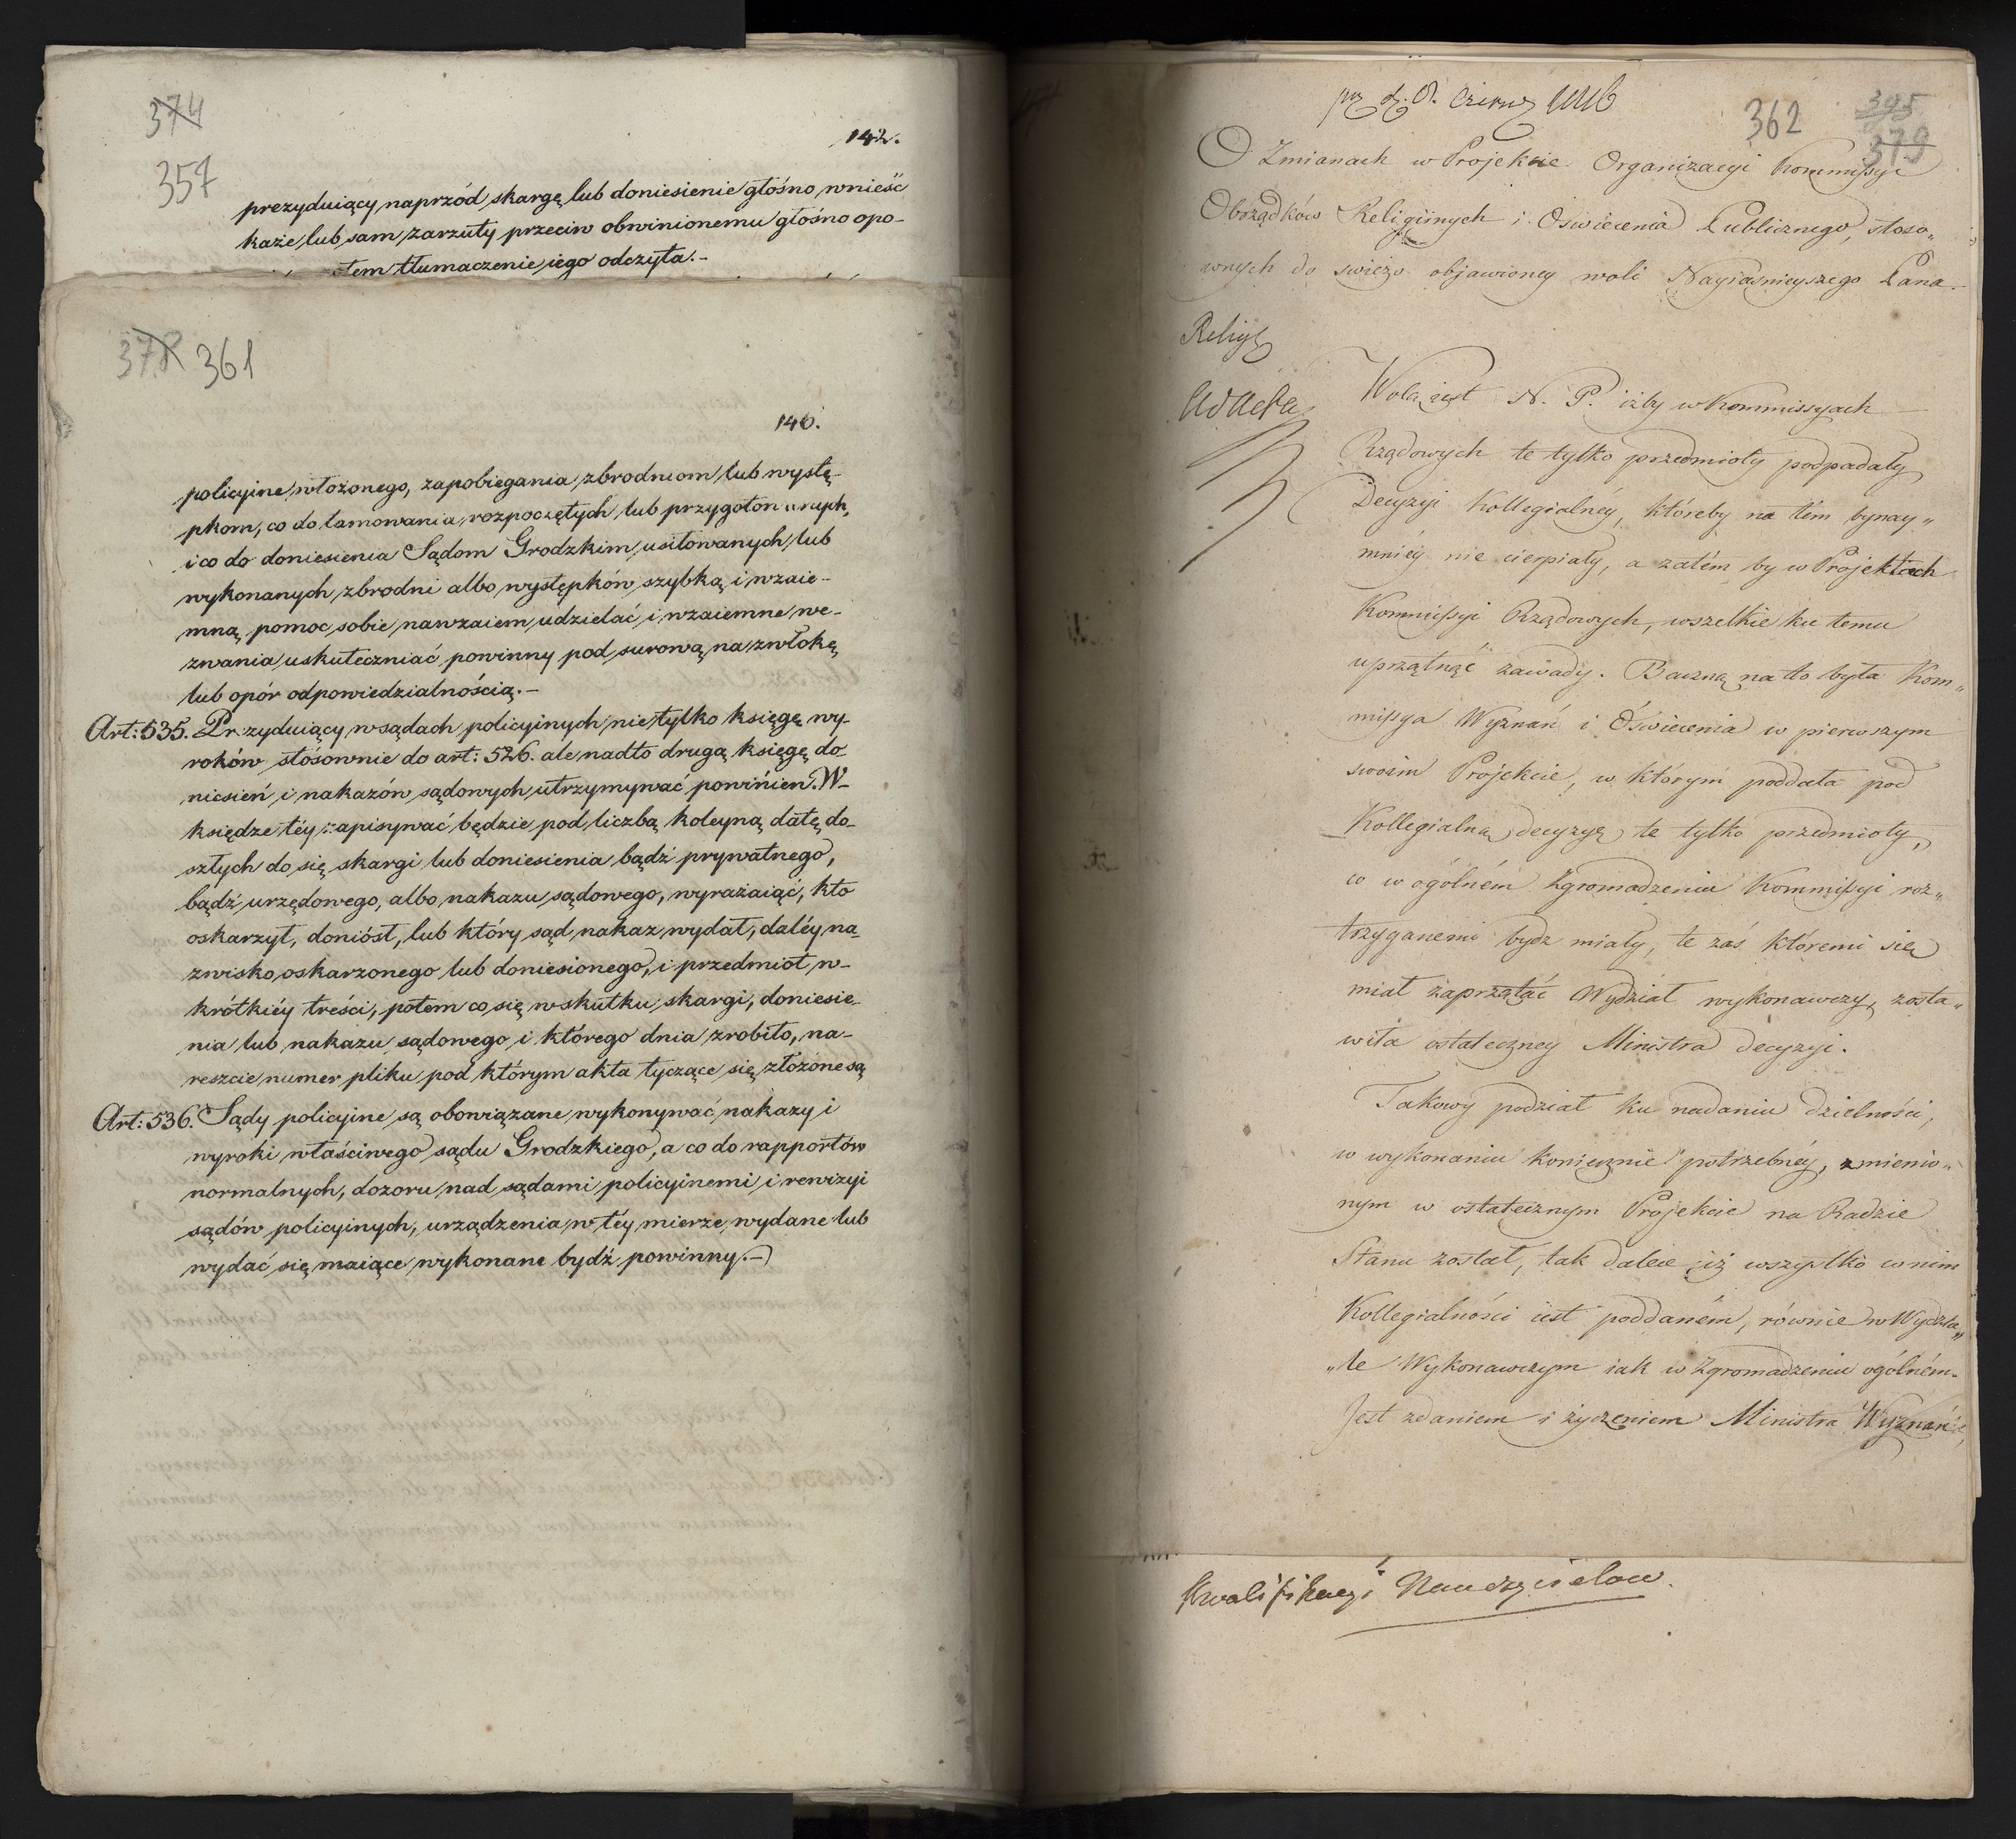 374
357
142.
prezyduiący naprzód skargę lub doniesienie głośno wnieść
każe, lub sam zarzuty przeciw obwinionemu głośno opo-
tem tłumaczenie iego odczyta.-
378 361
146.
policyine włożonego, zapobiegania zbrodniom lub wystę-
pkom, co do tamowania rozpoczętych lub przygotowanych,
i co do doniesienia Sądom Grodzkim, usiłowanych lub
wykonanych zbrodni albo występków szybką i wzaie-
mną pomoc sobie nawzaiem udzielać i wzaiemne we-
zwania uskuteczniać powinny pod surową na zwłokę
lub opór odpowiedzialnością.-
Art: 535. Prezyduiący w sądach policyinych nietylko księgę wy-
roków stósownie do art: 526. ale nadto drugą księgę do-
niesień i nakazów sądowych utrzymywać powinien. W-
księdze téy zapisywać będzie pod liczbą koleyną datę do-
szłych do się skargi lub doniesienia bądź prywatnego,
bądź urzędowego, albo nakazu sądowego, wyrażaiąć, kto
oskarzył, doniósł, lub który sąd nakaz wydał, daléy na-
zwisko oskarzonego lub doniesionego, i przedmiot w-
krótkiéy treści, potem co się w skutku skargi, doniesie-
nia lub nakazu sądowego i którego dnia zrobiło, na-
reszcie numer pliku pod którym akta tyczące się złożone są
Art: 536. Sądy policyine są obowiązane wykonywać nakazy i
wyroki właściwego sądu Grodzkiego, a co do rapportów
normalnych, dozoru nad sądami policyinemi i rewizyi
sądów policyinych, urządzenia w téy mierze wydane lub
wydać się maiące wykonane bydź powinny.-
362 395
379
O Zmianach w Projekcie Organizacyi Kommissyi
Obrządków Religiinych i Oświecenia Publicznego, stoso„
wnych do świeżo objawioney woli Nayiaśnieyszego Pana.-
Ad Acta
Wolą iest N. P. iżby w Kommissyach
Rządowych te tylko przedmioty podpadały
Decyzyi Kollegialnéy, któreby na tém bynay„
mniéy nie cierpiały, a zatém by w Projektach
Kommissyi Rządowych, wszelkie ku temu
uprzątnąć zawady. Baczną na to była Kom„
missya Wyznań i Oświecenia w pierwszym
swoim Projekcie, w którym poddała pod
Kollegialną decyzyę te tylko przedmioty,
co w ogólném Zgromadzeniu Kommissyi roz„
trzyganemi bydz miały, te zaś któremi się
miał zaprzątać Wydział wykonawczy, zosta„
wiła ostateczney Ministra decyzyi.
Takowy podział ku nadaniu dzielności,
w wykonaniu koniecznie potrzebnéy, zmienio„
nym w ostatecznym Projekcie na Radzie
Stanu został, tak dalece iż wszystko w nim
Kollegialności iest poddaném, równie w Wydzia„
„le Wykonawczym iak w Zgromadzeniu ogólném.
Jest zdaniem i życzeniem Ministra Wyznań
Kwalifikacyi Nauczycielów.